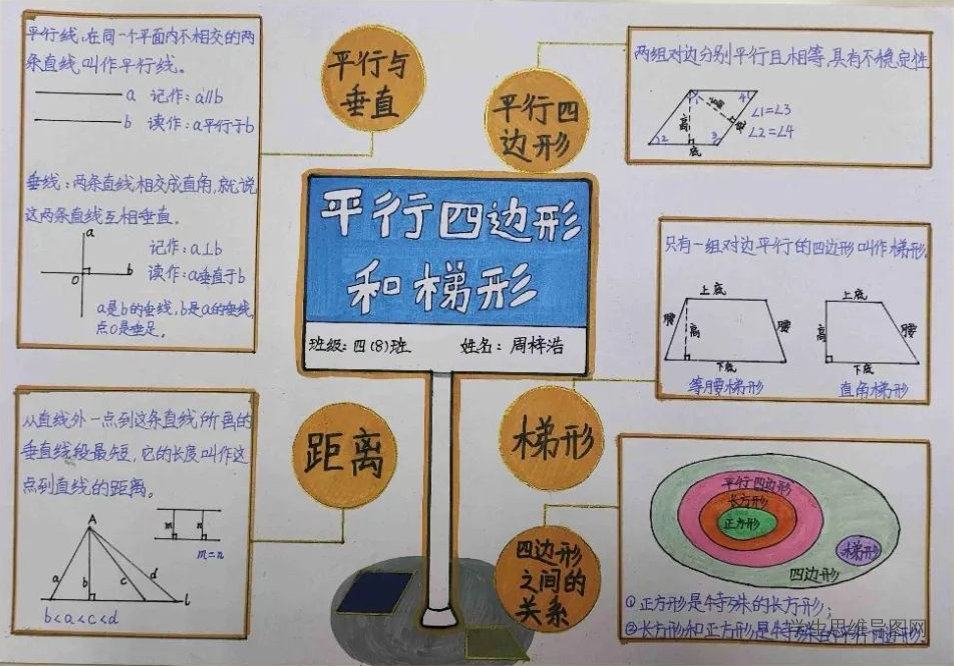 平行线:在同一个平面内不相交的两
条直线叫作平行线。
a 记作:a∥b
b 读作:a平行于b
垂线:两条直线相交成直角,就说
这两条直线互相垂直。
a
记作:a⊥b
b
O
读作:a垂直于b
a是b的垂线,b是a的垂线,
点O是垂足。
平行与
垂直
平行四
边形
两组对边分别平行且相等,具有不稳定性
1 4
2 3
高
高
底
底
∠1=∠3
∠2=∠4
平行四边形
和梯形
班级:四(8)班 姓名:周梓浩
只有一组对边平行的四边形叫作梯形。
上底
腰 高 腰
下底
等腰梯形
上底
高 腰
下底
直角梯形
从直线外一点到这条直线所画的
垂直线段最短,它的长度叫作这
点到直线的距离。
A
a b c d
l
b<a<c<d
m n
m=n
距离
梯形
四边形
之间的
关系
平行四边形
长方形
正方形
梯形
四边形
①正方形是特殊的长方形;
②长方形和正方形是特殊的平行四边形。
学生思维导图网